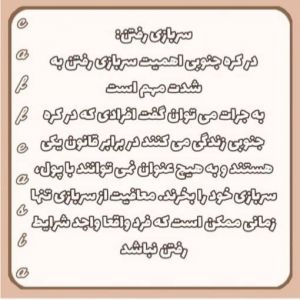 سربازی رفتن:
در کره جنوبی اهمیت سربازی رفتن به
شدت مهم است
به جرات می توان گفت افرادی که در کره
جنوبی زندگی می کنند در برابر قانون یکی
هستند و به هیچ عنوان نمی توانند با پول،
سربازی خود را بخرند. معافیت از سربازی تنها
زمانی ممکن است که فرد واقعا واجد شرایط
رفتن نباشد